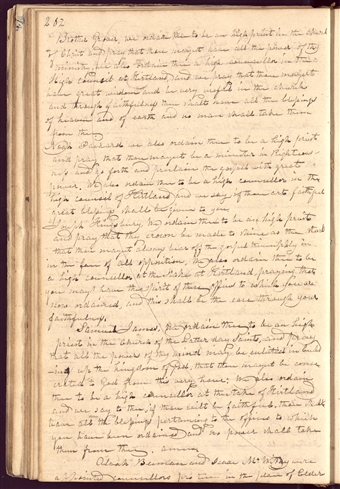 202
Brother Groad, we ordain thee to be an high priest in the church
of Christ and pray that thou mayest have all the power of thy
ministry, we also ordain thee a high counsellor in this
High council at Kirtland, and we pray that thou mayest
have great wisdom and be very useful in the church
and through faithfulness thou shalt have all the blessings
of heaven and of earth and no man shall take them
from thee
Noah Packard we also ordain thee to be a high priest
and pray that thou mayest be a minister in righteous-
ness and go forth and proclaim the gospel with great
power. We also ordain thee to be a high counsellor in the
high council of Kirtland and we say if thou art faithful
great blessings shall be given to you
Joseph Kingsbury, We ordain thee to be an high priest
and pray that thy crown be made to shine as the stars
that thou mayest always bear off the gospel triumphantly in
in the face of all opposition, We also ordain thee to be
a high counsellor, at the stake of Kirtland, praying that
you may have the spirit of these offices to which you are
now ordained, and this shall be the case through your
faithfulness.
Samuel James, We ordain thee to be an high
priest in the church of the latter day saints, and pray
that all the powers of thy mind may be enlisted in build
-ing up the kingdom of God, that thou mayest be conse
crated to God from this very hour; We also ordain
thee to be a high counsellor at the stake of Kirtland
and we say to thee, if thou wilt be faithful, thou shalt
have all the blessings pertaining to the offices to which
you have been ordained and no power shall take
them from thee, amen.
Alvah Beeman and Isaac McWithy were
counsellors pro tem in the place of Elder